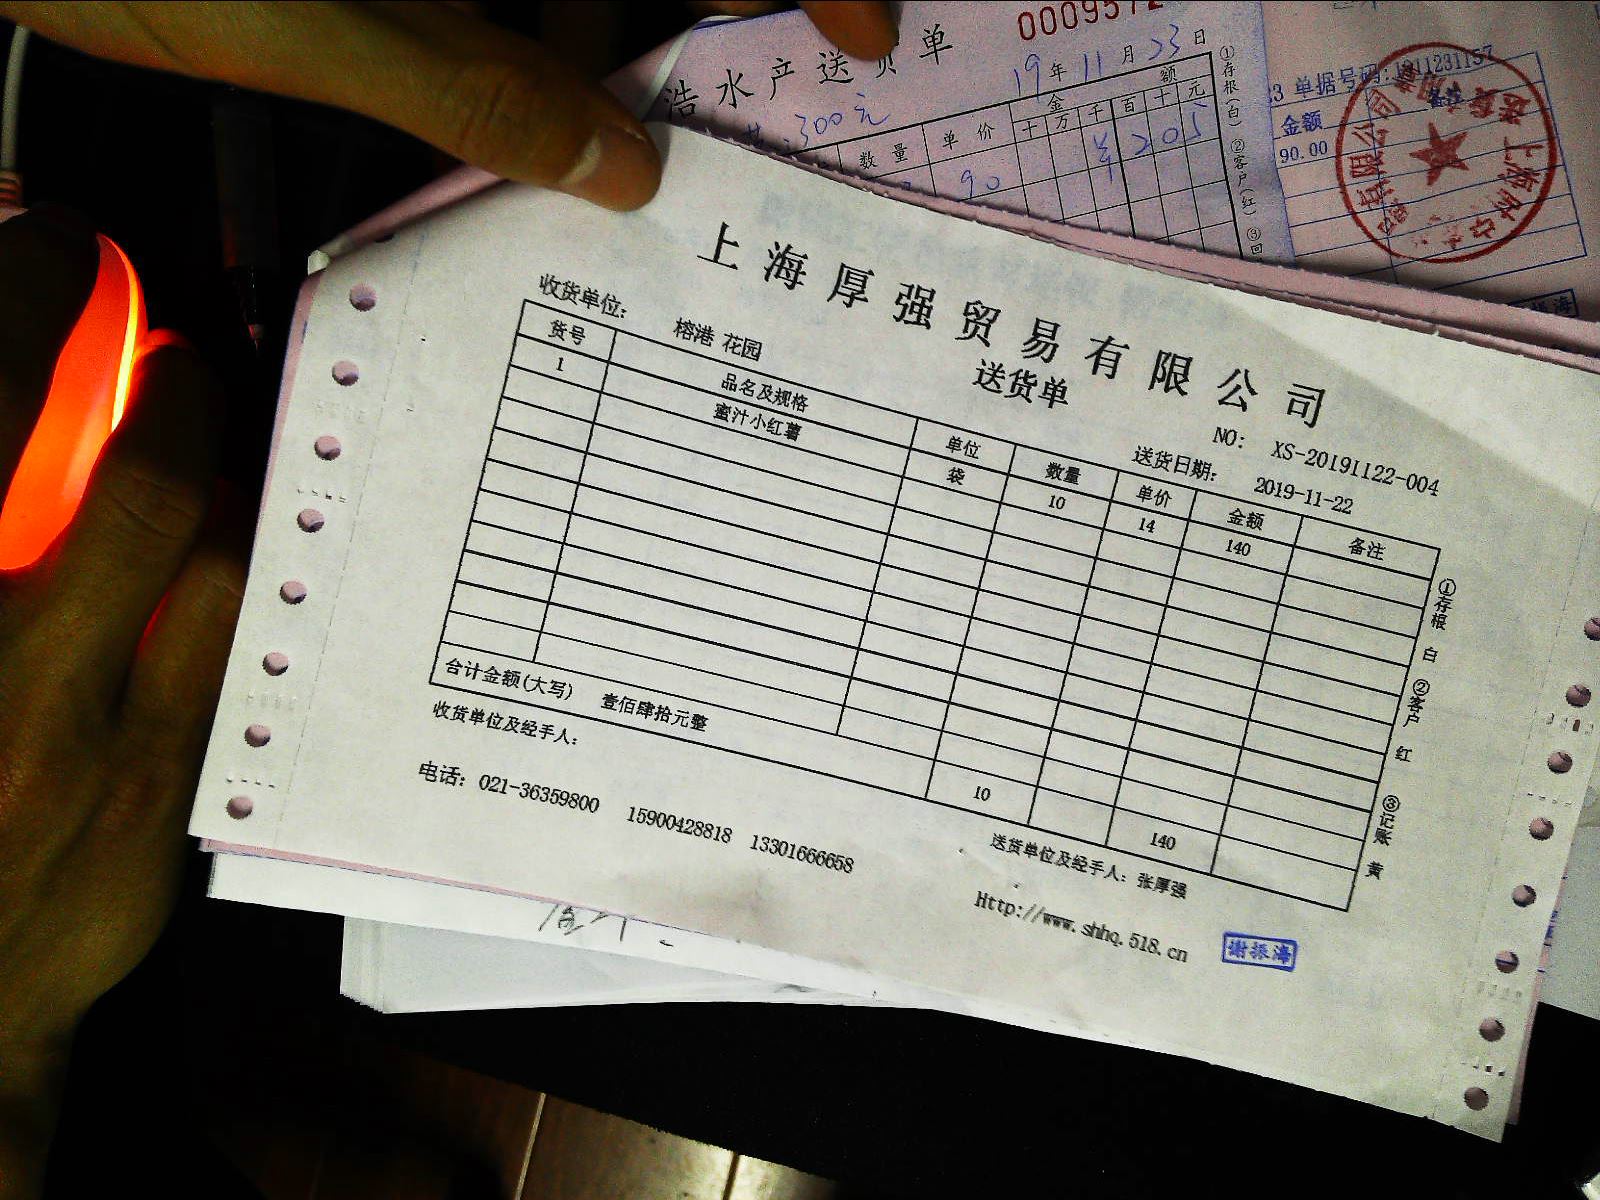 0009572
浩水产送货单
19年11月23日
300元
数量 单价 金额
十万千百十元
90 ¥205
①存根(白) ②客户(红) ③回
单据号码:1911231157
备注
金额
90.00
上海厚强贸易有限公司
送货单
收货单位: 榕港 花园
NO: XS-20191122-004
送货日期: 2019-11-22
货号 品名及规格 单位 数量 单价 金额 备注
1 蜜汁小红薯 袋 10 14 140
合计金额(大写) 壹佰肆拾元整 10 140
①存根 白 ②客户 红 ③记账 黄
收货单位及经手人:
送货单位及经手人: 张厚强
电话: 021-36359800 15900428818 13301666658
Http://www.shhq.518.cn
谢振海